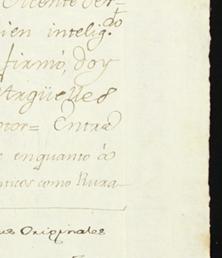 Vicente Ser-
ien intelig.do
firmó, doy
Argüelles
otor= Entre
enquanto á
nticos como Rura-
us Originales